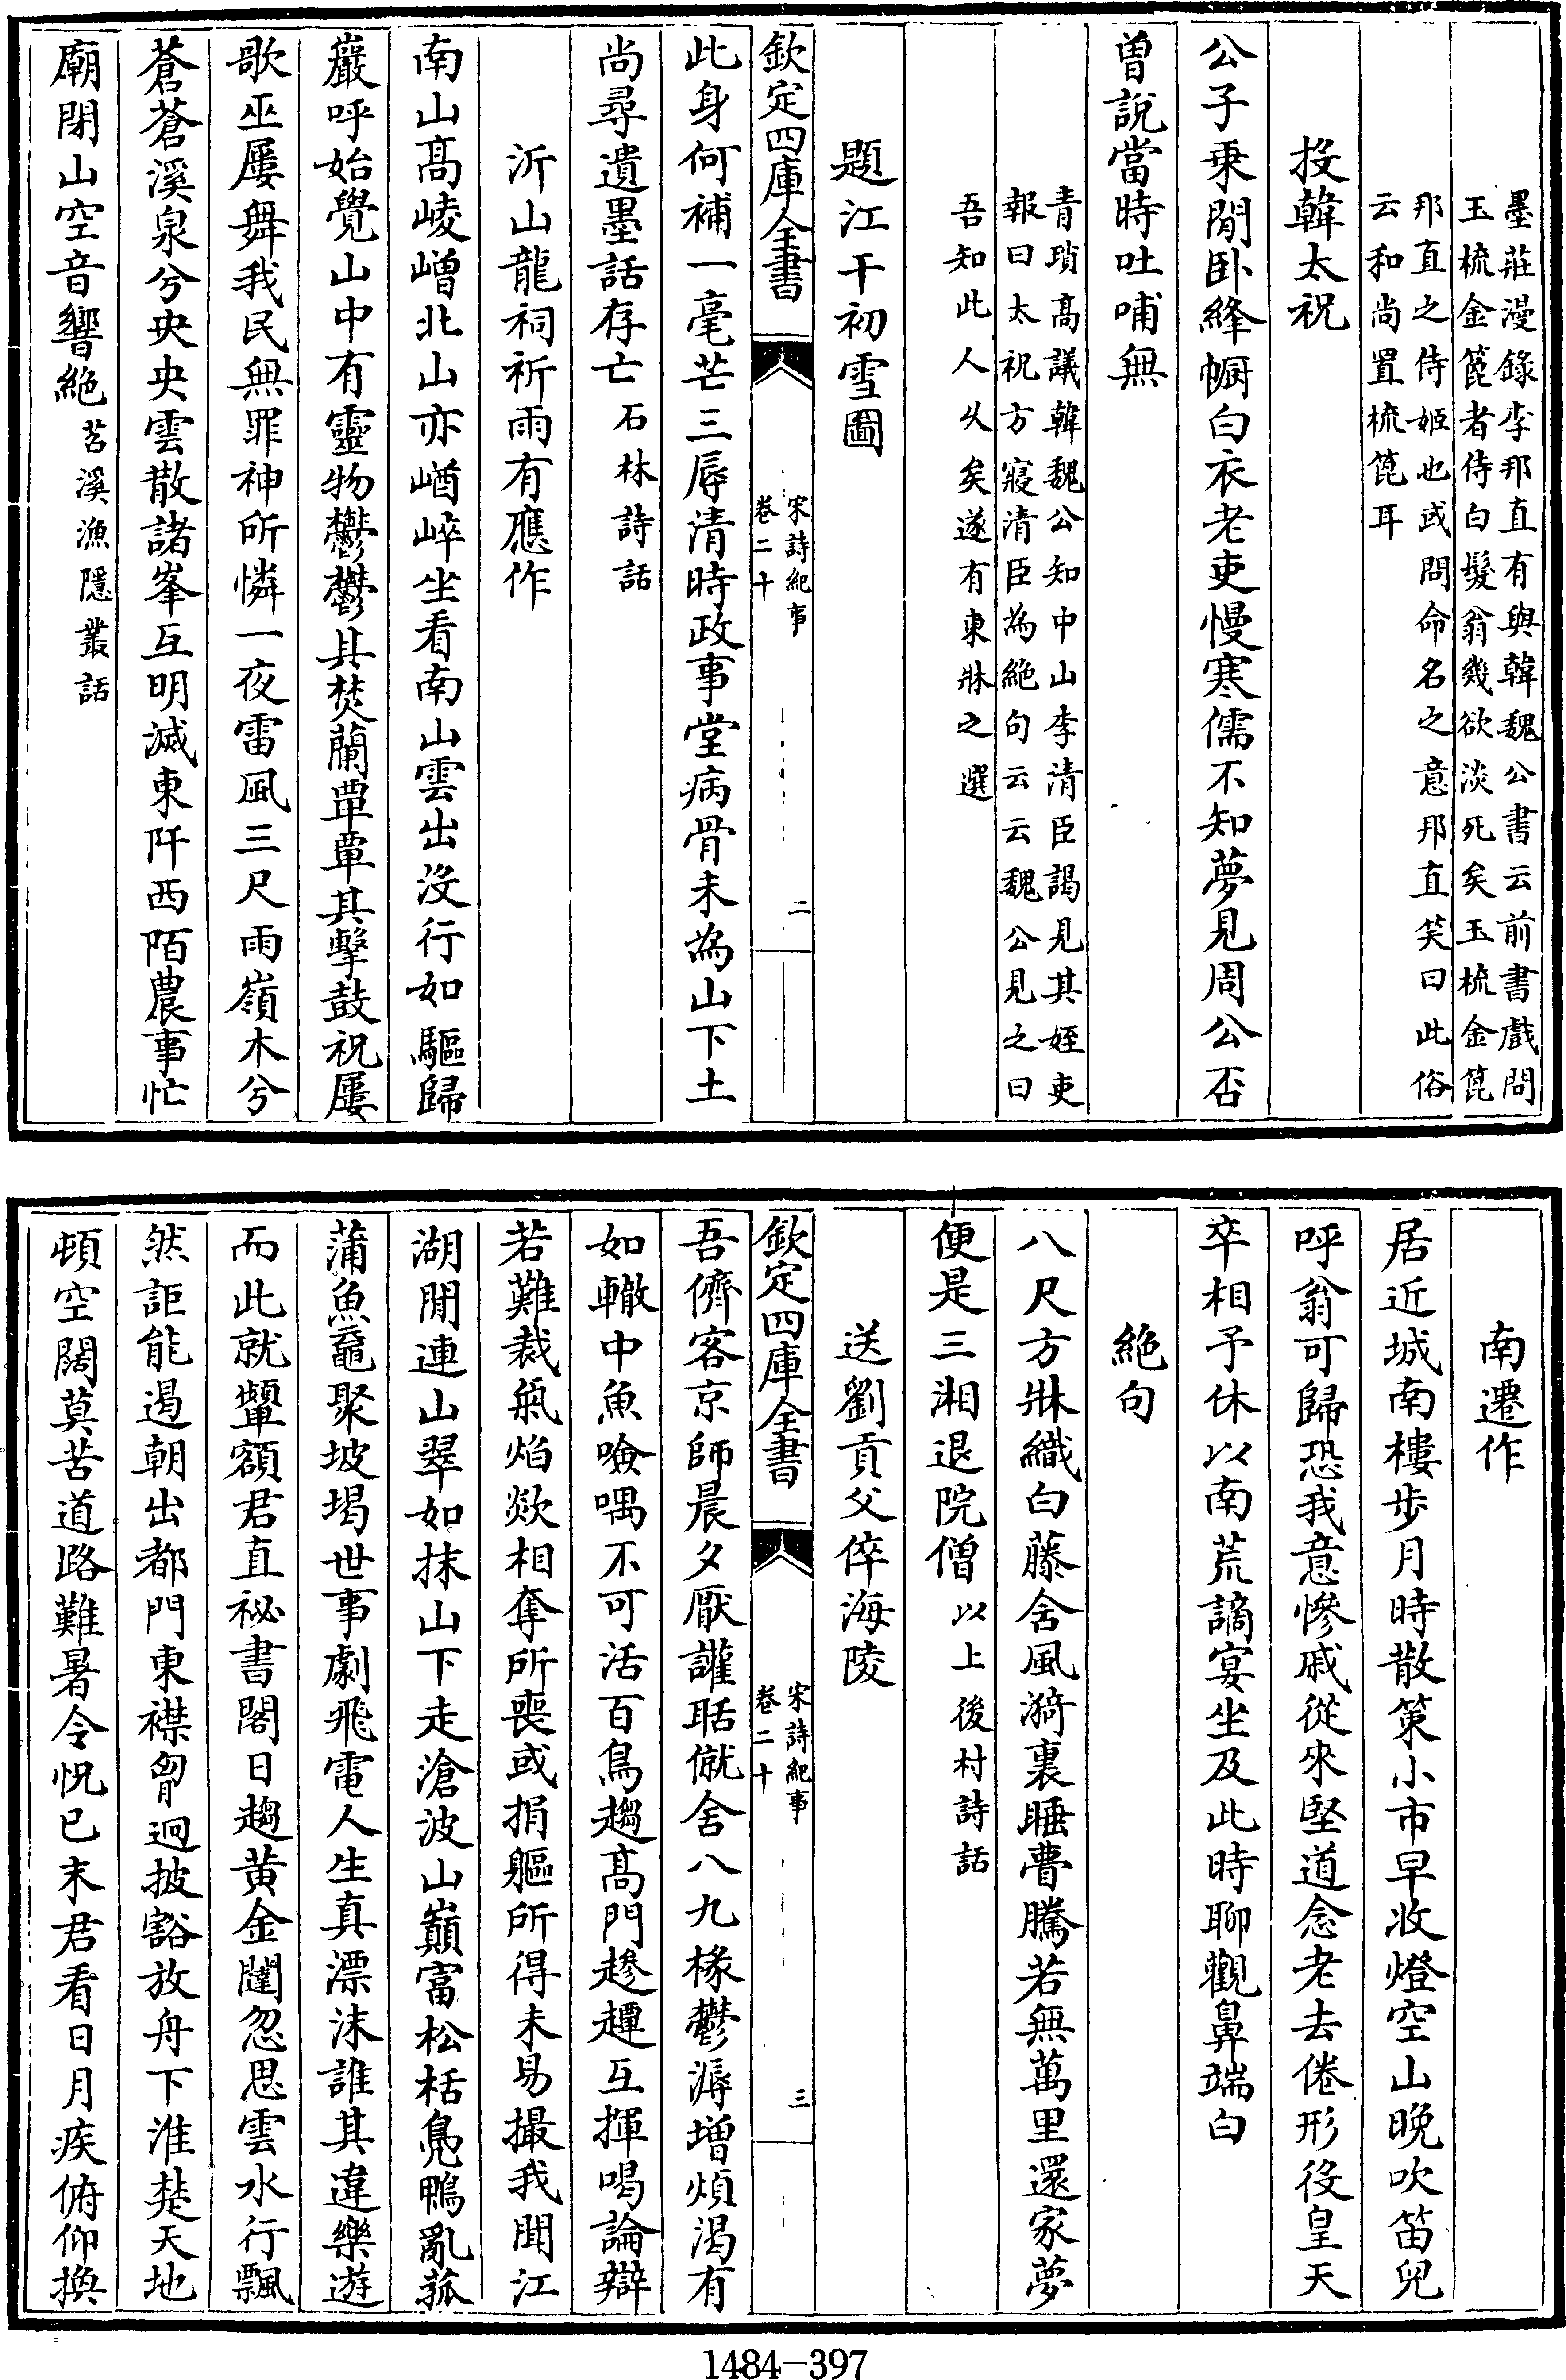 墨莊漫錄李邦直有與韓魏公書云前書戲問
玉梳金篦者侍白髮翁幾欲淡死矣玉梳金篦
邦直之侍姬也或問命名之意邦直笑曰此俗
云和尚置梳篦耳
投韓太祝
公子乗閒卧絳幮白衣老吏慢寒儒不知夢見周公否
曽說當時吐哺無
青瑣髙議韓魏公知中山李清臣謁見其姪吏
報曰太祝方寢清臣為絶句云云魏公見之曰
吾知此人久矣遂有東牀之選
題江干初雪圖
欽定四庫全書
宋詩紀事
卷二十
二
此身何補一毫芒三辱清時政事堂病骨未為山下土
尚尋遺墨話存亡石林詩話
沂山龍祠祈雨有應作
南山髙崚嶒北山亦崷崪坐看南山雲出没行如驅歸
巖呼始覺山中有靈物鬱鬱其焚蘭罩罩其擊鼓祝屢
歌巫屢舞我民無罪神所憐一夜雷風三尺雨嶺木兮
蒼蒼溪泉兮央央雲散諸峯互明滅東阡西陌農事忙
廟閉山空音響絶苕溪漁隱叢話
南遷作
居近城南樓步月時散策小市早收燈空山晚吹笛兒
呼翁可歸恐我意慘戚從來堅道念老去倦形役皇天
卒相予休以南荒謫宴坐及此時聊觀鼻端白
絶句
八尺方牀織白藤含風漪裏睡瞢騰若無萬里還家夢
便是三湘退院僧以上後村詩話
送劉貢父倅海陵
欽定四庫全書
宋詩紀事
卷二十
三
吾儕客京師晨夕厭讙聒僦舍八九椽鬱溽增煩渴有
如轍中魚噞喁不可活百鳥趨髙門趁趯互揮喝論辯
若難裁氣焰欻相奪所喪或捐軀所得未易撮我聞江
湖間連山翠如抹山下走滄波山巔富松栝鳬鴨亂菰
蒲魚黿聚坡堨世事劇飛電人生真漂沫誰其違樂遊
而此就顰額君直祕書閣日趨黄金闥忽思雲水行飄
然詎能遏朝出都門東襟胷迥披豁放舟下淮楚天地
頓空闊莫苦道路難暑令怳已末君看日月疾俯仰換
1484-397